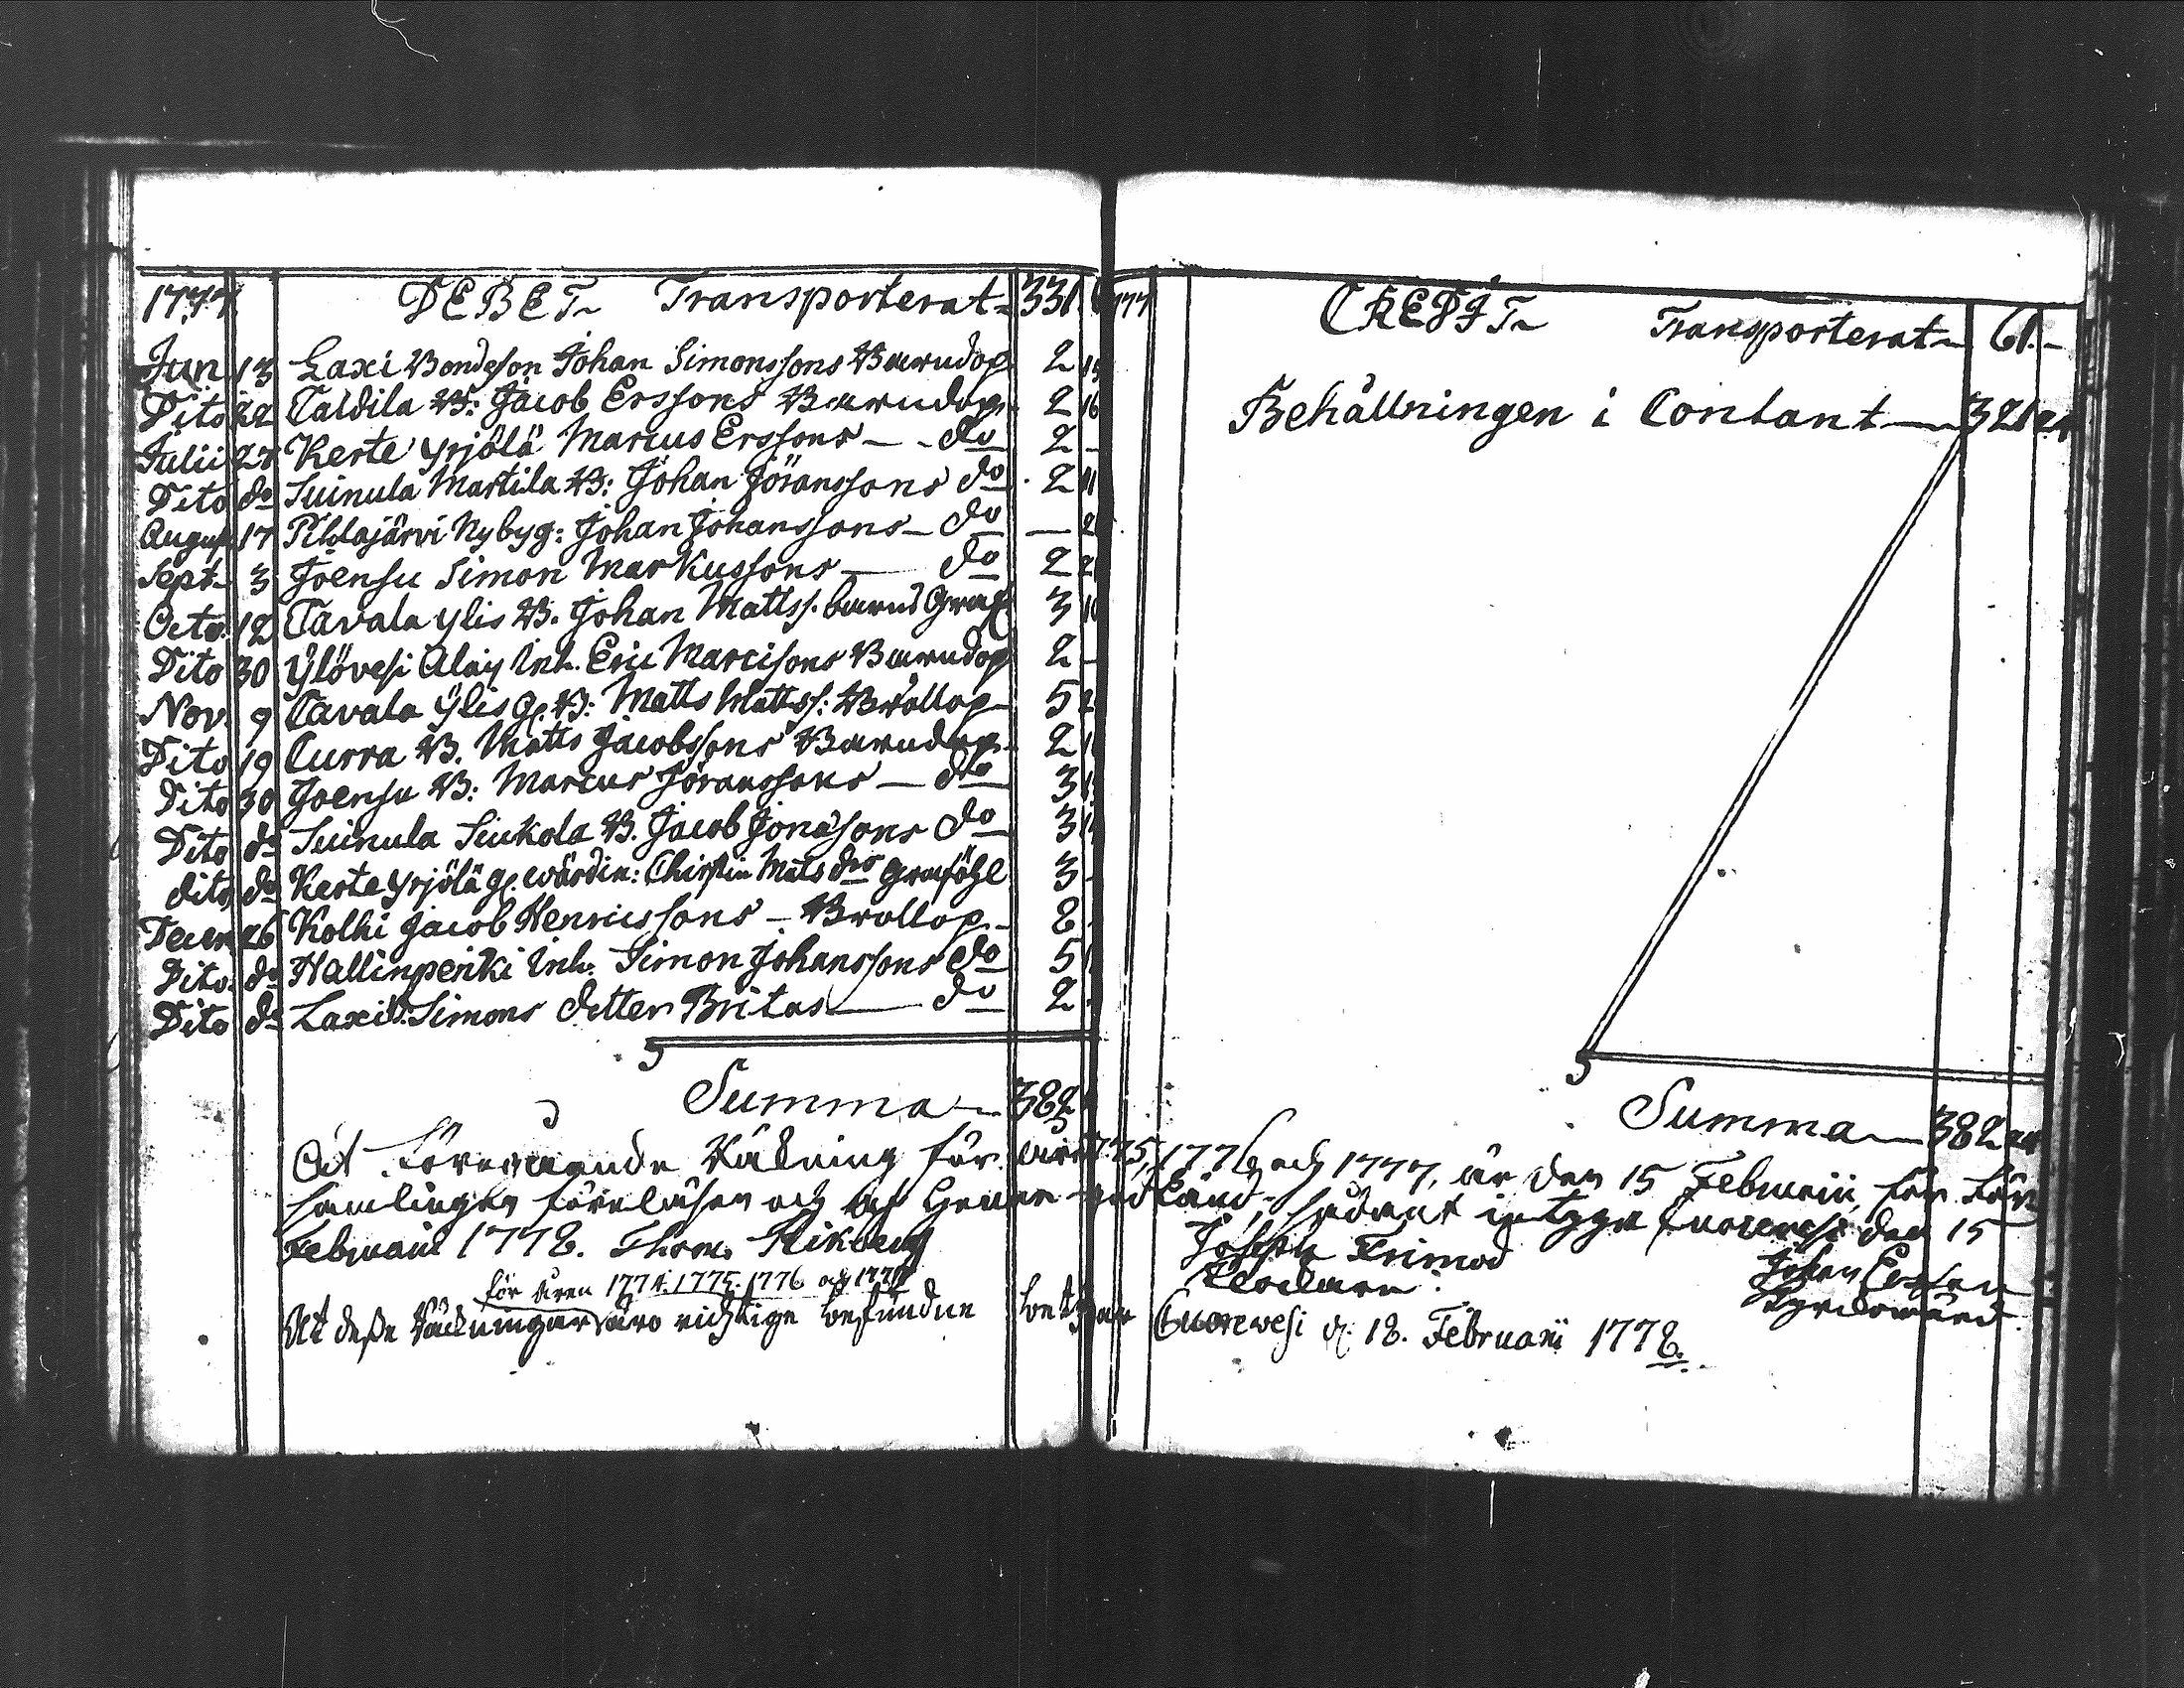 1777 DEBET Transporterat 331
Jun 13 Laxi Bondeson Johan Simonssons Barndop 2
Dito 22 Taldila B: Jacob Erssons Barndop 2 16
Julii 27 Kerte Yrjölä Marcus Erssons — do 2 —
Dito do Suinula Martila B: Johan Jöranssons do 2 11
August 17 Pihlajärvi Nybyg: Johan Johanssons — do —
Sept. 3 Joensu Simon Markussons — do 2
Octo. 12 Tavala Ylis B. Johan Mattss. barns Graf 3
Dito 30 Ylövesi Alaj Inh. Eric Marcisons Barndop 2 —
Nov. 9 Tavala Ylis g. B: Matts Mattss: Bröllop 5
Dito 19 Curra B. Matts Jacobssons Barndop 2
Dito 30 Joensu B: Marcus Jöranssons — do 3
Dito do Suinula Siukola B. Jacob Jonasons do 3
dito do Kerte Yrjölä g. wärdin: Chirstin Mats dr Graföhl 3
Decem 26 Kolhi Jacob Henricssons — Bröllop 8
Dito do Hallinpenki Inh. Simon Johanssons do 5
Dito do Laxi B. Simons dotter Britas — do 2
Summa 382
1777 CREDIT Transporterat 61 —
Behållningen i Contant — 321 24
Summa — 382 24
At förestående Räkning för åren 1775, 1776 och 1777, är den 15 Februarii för För
samlingen föreläsen och af henne godkänd, sådant intygar Kuorevesi den 15
Februarii 1778. Thom. Joseph Frimod Johan Ersson
Klockare. Kyrkowärd
för åren 1774. 1775. 1776 och 1777
At deße Räkningar äro richtige befundne betygar Kuorewesi d. 18. Februarii 1778.